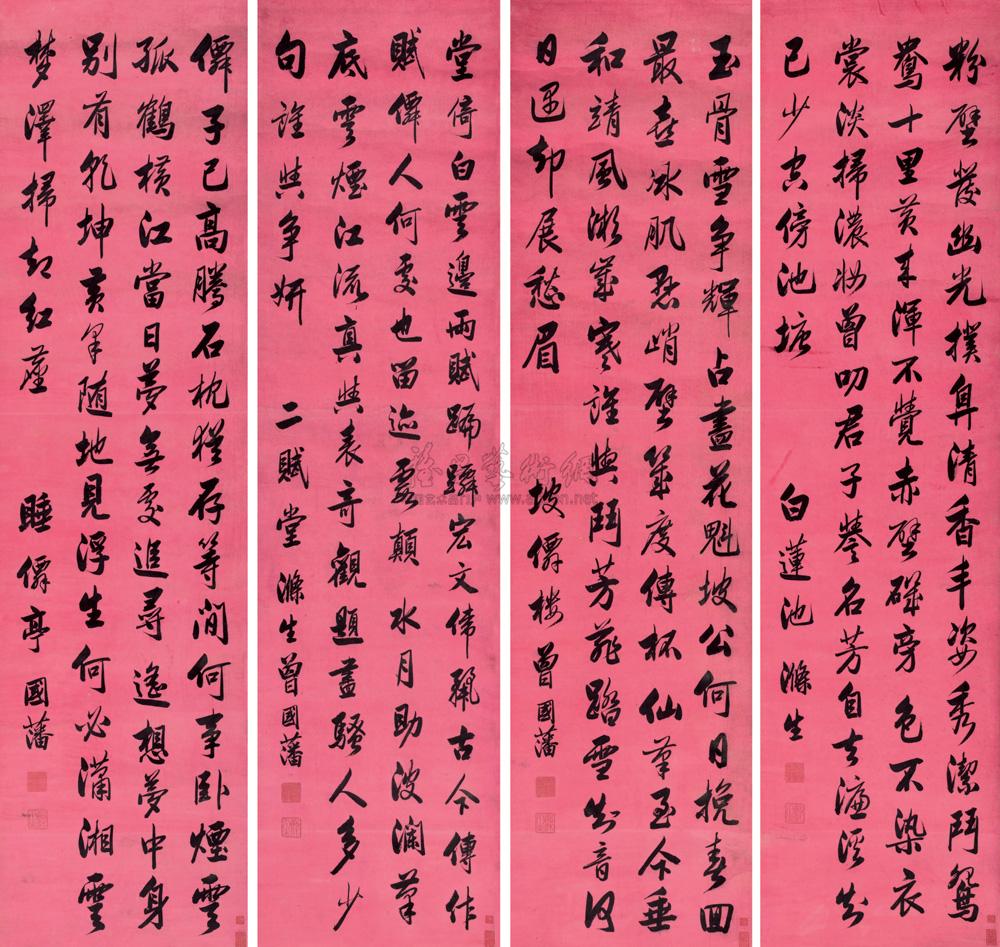 粉壁發幽光撲鼻清香丰姿秀潔鬥鴛
鴦十里渾不覺赤壁磯旁色不染衣
裳淡掃濃妝曾叨君子名芳自去濂溪知
已少空傍池塘 白蓮池 滌生
玉骨雪争輝占盡花魁坡公何日挽春回
最喜冰肌峭壁幾度傳杯仙筆至今垂
和靖風漸幾寒誰與鬥芳菲踏雪知音何
日遇却展愁眉 坡僊樓 曾國藩
堂倚白雲邊兩賦蹁躚宏文偉製古今傳作
賦僊人何處也留迹雲顛水月助波瀾筆
底雲煙江流真與表奇觀題盡騷人多少
句誰與争妍 二賦堂 滌生曾國藩
僊子已高騰石枕猶存等閒何事卧煙雲
孤鶴橫江當日夢無處追尋遙想夢中身
别有乾坤黃粱随地見浮生何必瀟湘雲
夢澤掃却紅塵 睡僊亭 國藩